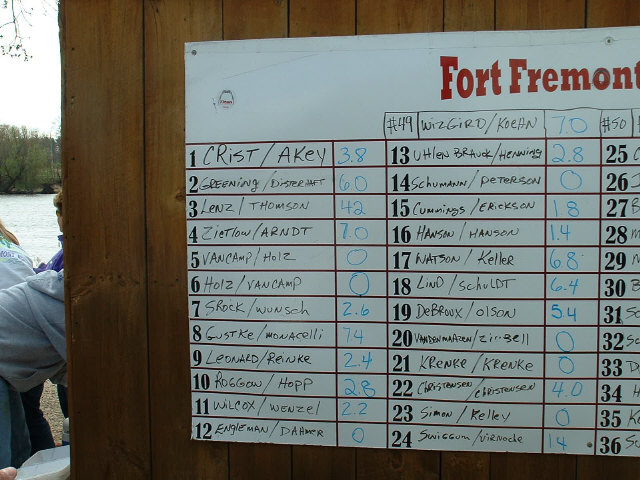 Fort Fremont
#49 WIZGIRD/KOEHN 7.0 #50
1 CRIST/AKEY 3.8 13 UHLENBRAUCK/HENNING 2.8 25
2 GREENING/DISTERHAFT 6.0 14 SCHUMANN/PETERSON 0 26
3 LENZ/THOMSON 42 15 CUMMINGS/ERICKSON 1.8 27
4 ZIETLOW/ARNDT 7.0 16 HANSON/HANSON 1.4 28
5 VANCAMP/HOLZ 0 17 WATSON/Keller 6.8 29
6 HOLZ/VANCAMP 0 18 LIND/SCHULDT 6.4 30
7 SROCK/WUNSCH 2.6 19 DEBROUX/OLSON 5.4 31
8 GUSTKE/MONACELLI 74 20 0 32
9 LEONARD/REINKE 2.4 21 KRENKE/KRENKE 0 33
10 ROGGOW/HOPP 2.8 22 CHRISTENSEN/CHRISTENSEN 4.0 34
11 WILCOX/WENZEL 2.2 23 SIMON/KELLEY 0 35
12 ENGLEMAN/DAHMER 0 24 SWIGGUM/VIRNOCHE 1.4 36